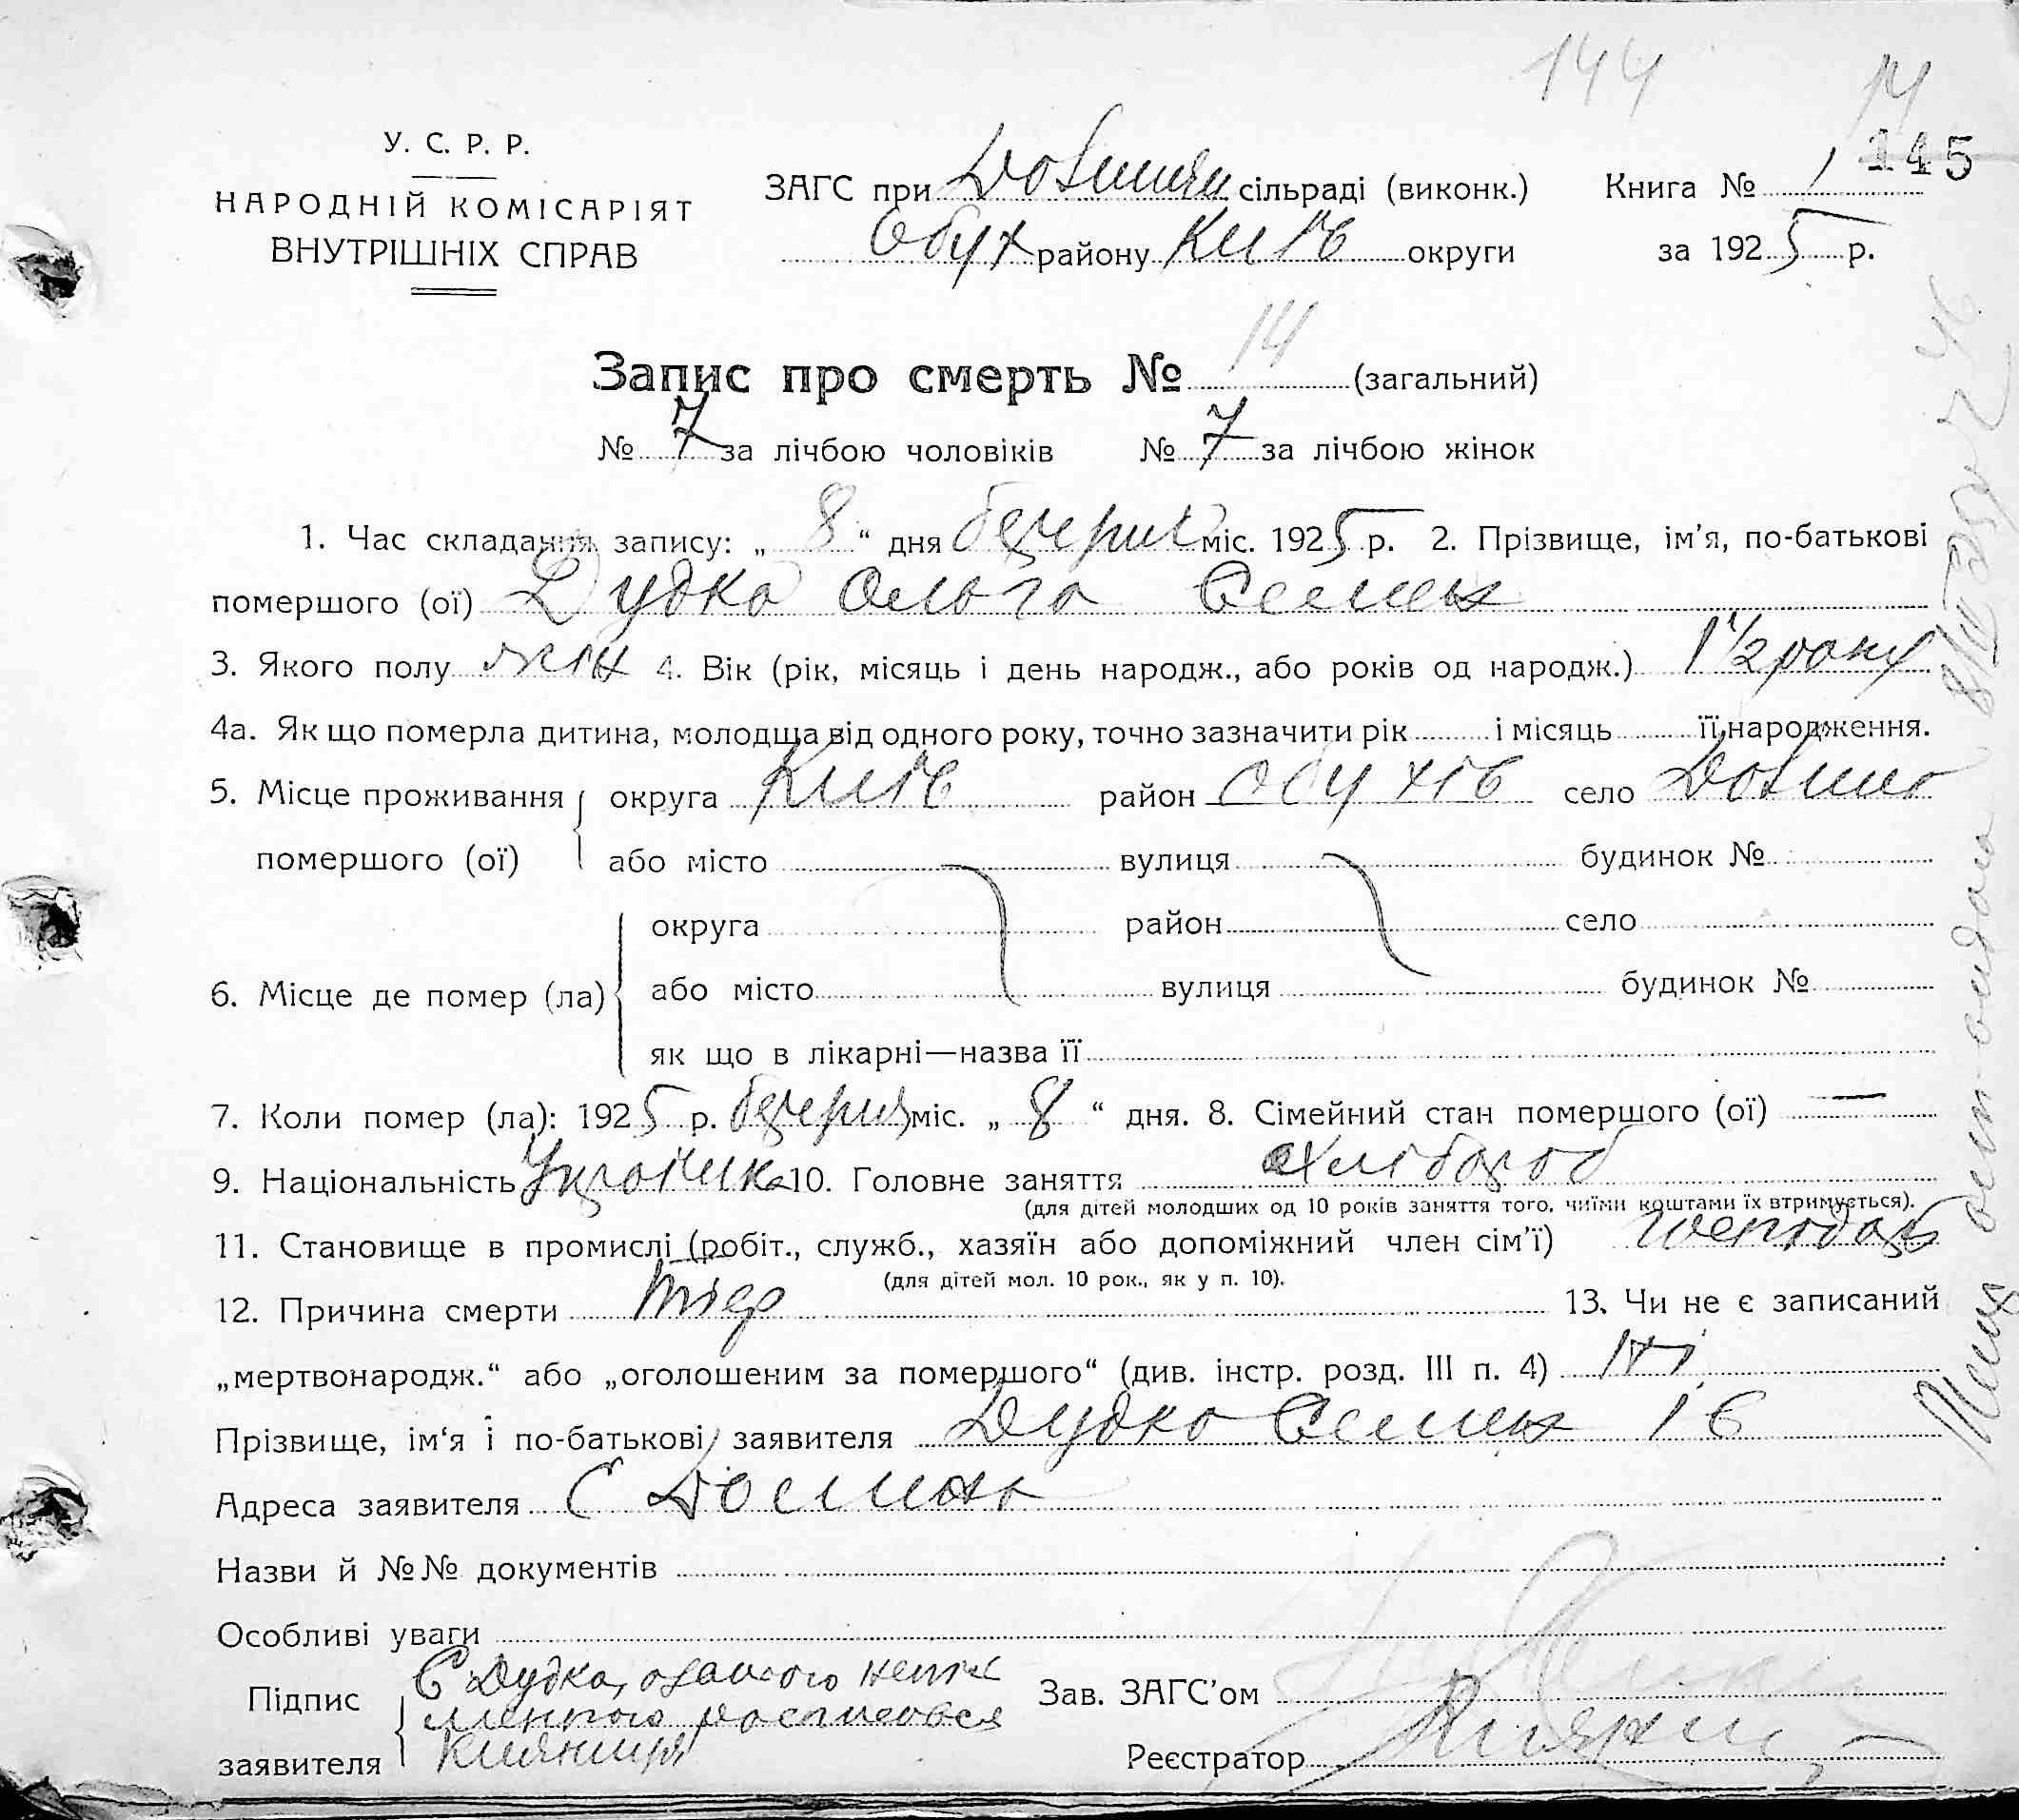 144
14
145
У. С. Р. Р.
НАРОДНІЙ КОМІСАРІЯТ
ВНУТРІШНІХ СПРАВ
ЗАГС при сільраді (виконк.) Книга № 1
Обух району Київ округи за 1925 р.
Запис про смерть № 14 (загальний)
№ 7 за лічбою чоловіків № 7 за лічбою жінок
1. Час складання запису: „ 8 “ дня міс. 1925 р. 2. Прізвище, ім'я, по-батькові
помершого (ої) Дудка Ольга Семен
3. Якого полу жін 4. Вік (рік, місяць і день народж., або років од народж.) 1 1/2 року
4а. Як що померла дитина, молодща від одного року, точно зазначити рік і місяць її народження.
5. Місце проживання округа Київ район Обухів село
помершого (ої) або місто вулиця будинок №
округа район село
6. Місце де помер (ла) або місто вулиця будинок №
як що в лікарні—назва її
7. Коли помер (ла): 1925 р. міс. „ 8 “ дня. 8. Сімейний стан помершого (ої) —
9. Національність Українка 10. Головне заняття хлібороб
(для дітей молодших од 10 років заняття того, чиїми коштами їх втримується).
11. Становище в промислі (робіт., служб., хазяїн або допоміжний член сім'ї) господар
(для дітей мол. 10 рок., як у п. 10).
12. Причина смерти 13. Чи не є записаний
„мертвонародж.“ або „оголошеним за помершого“ (див. інстр. розд. III п. 4) Ні
Прізвище, ім'я і по-батькові заявителя Дудка Семен Ів
Адреса заявителя С
Назви й №№ документів
Особливі уваги
Підпис С Дудка,
заявителя
Зав. ЗАГС'ом
Реєстратор